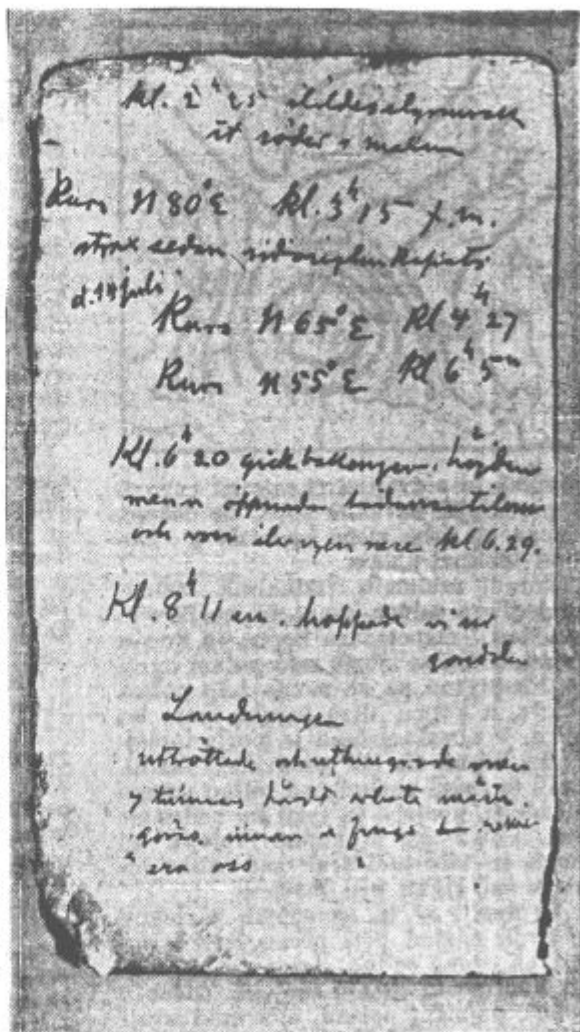 kl. 2ʰ 25
Kurs N 80° E kl. 3ʰ 15 f.m.
strax sedan
d. 14 juli
Kurs N 65° E Kl 4ʰ 27
Kurs N 55° E Kl 6ʰ 5ᵐ
Kl. 6ʰ 20 gick ballongen i höjden
men vi öppnade
och voro nere kl 6.29.
Kl. 8ʰ 11 em. hoppade vi ur
gondolen
Landningen
uttröttade och uthungrade men
7 timmars hårdt arbete måste
göras innan vi finge
era oss